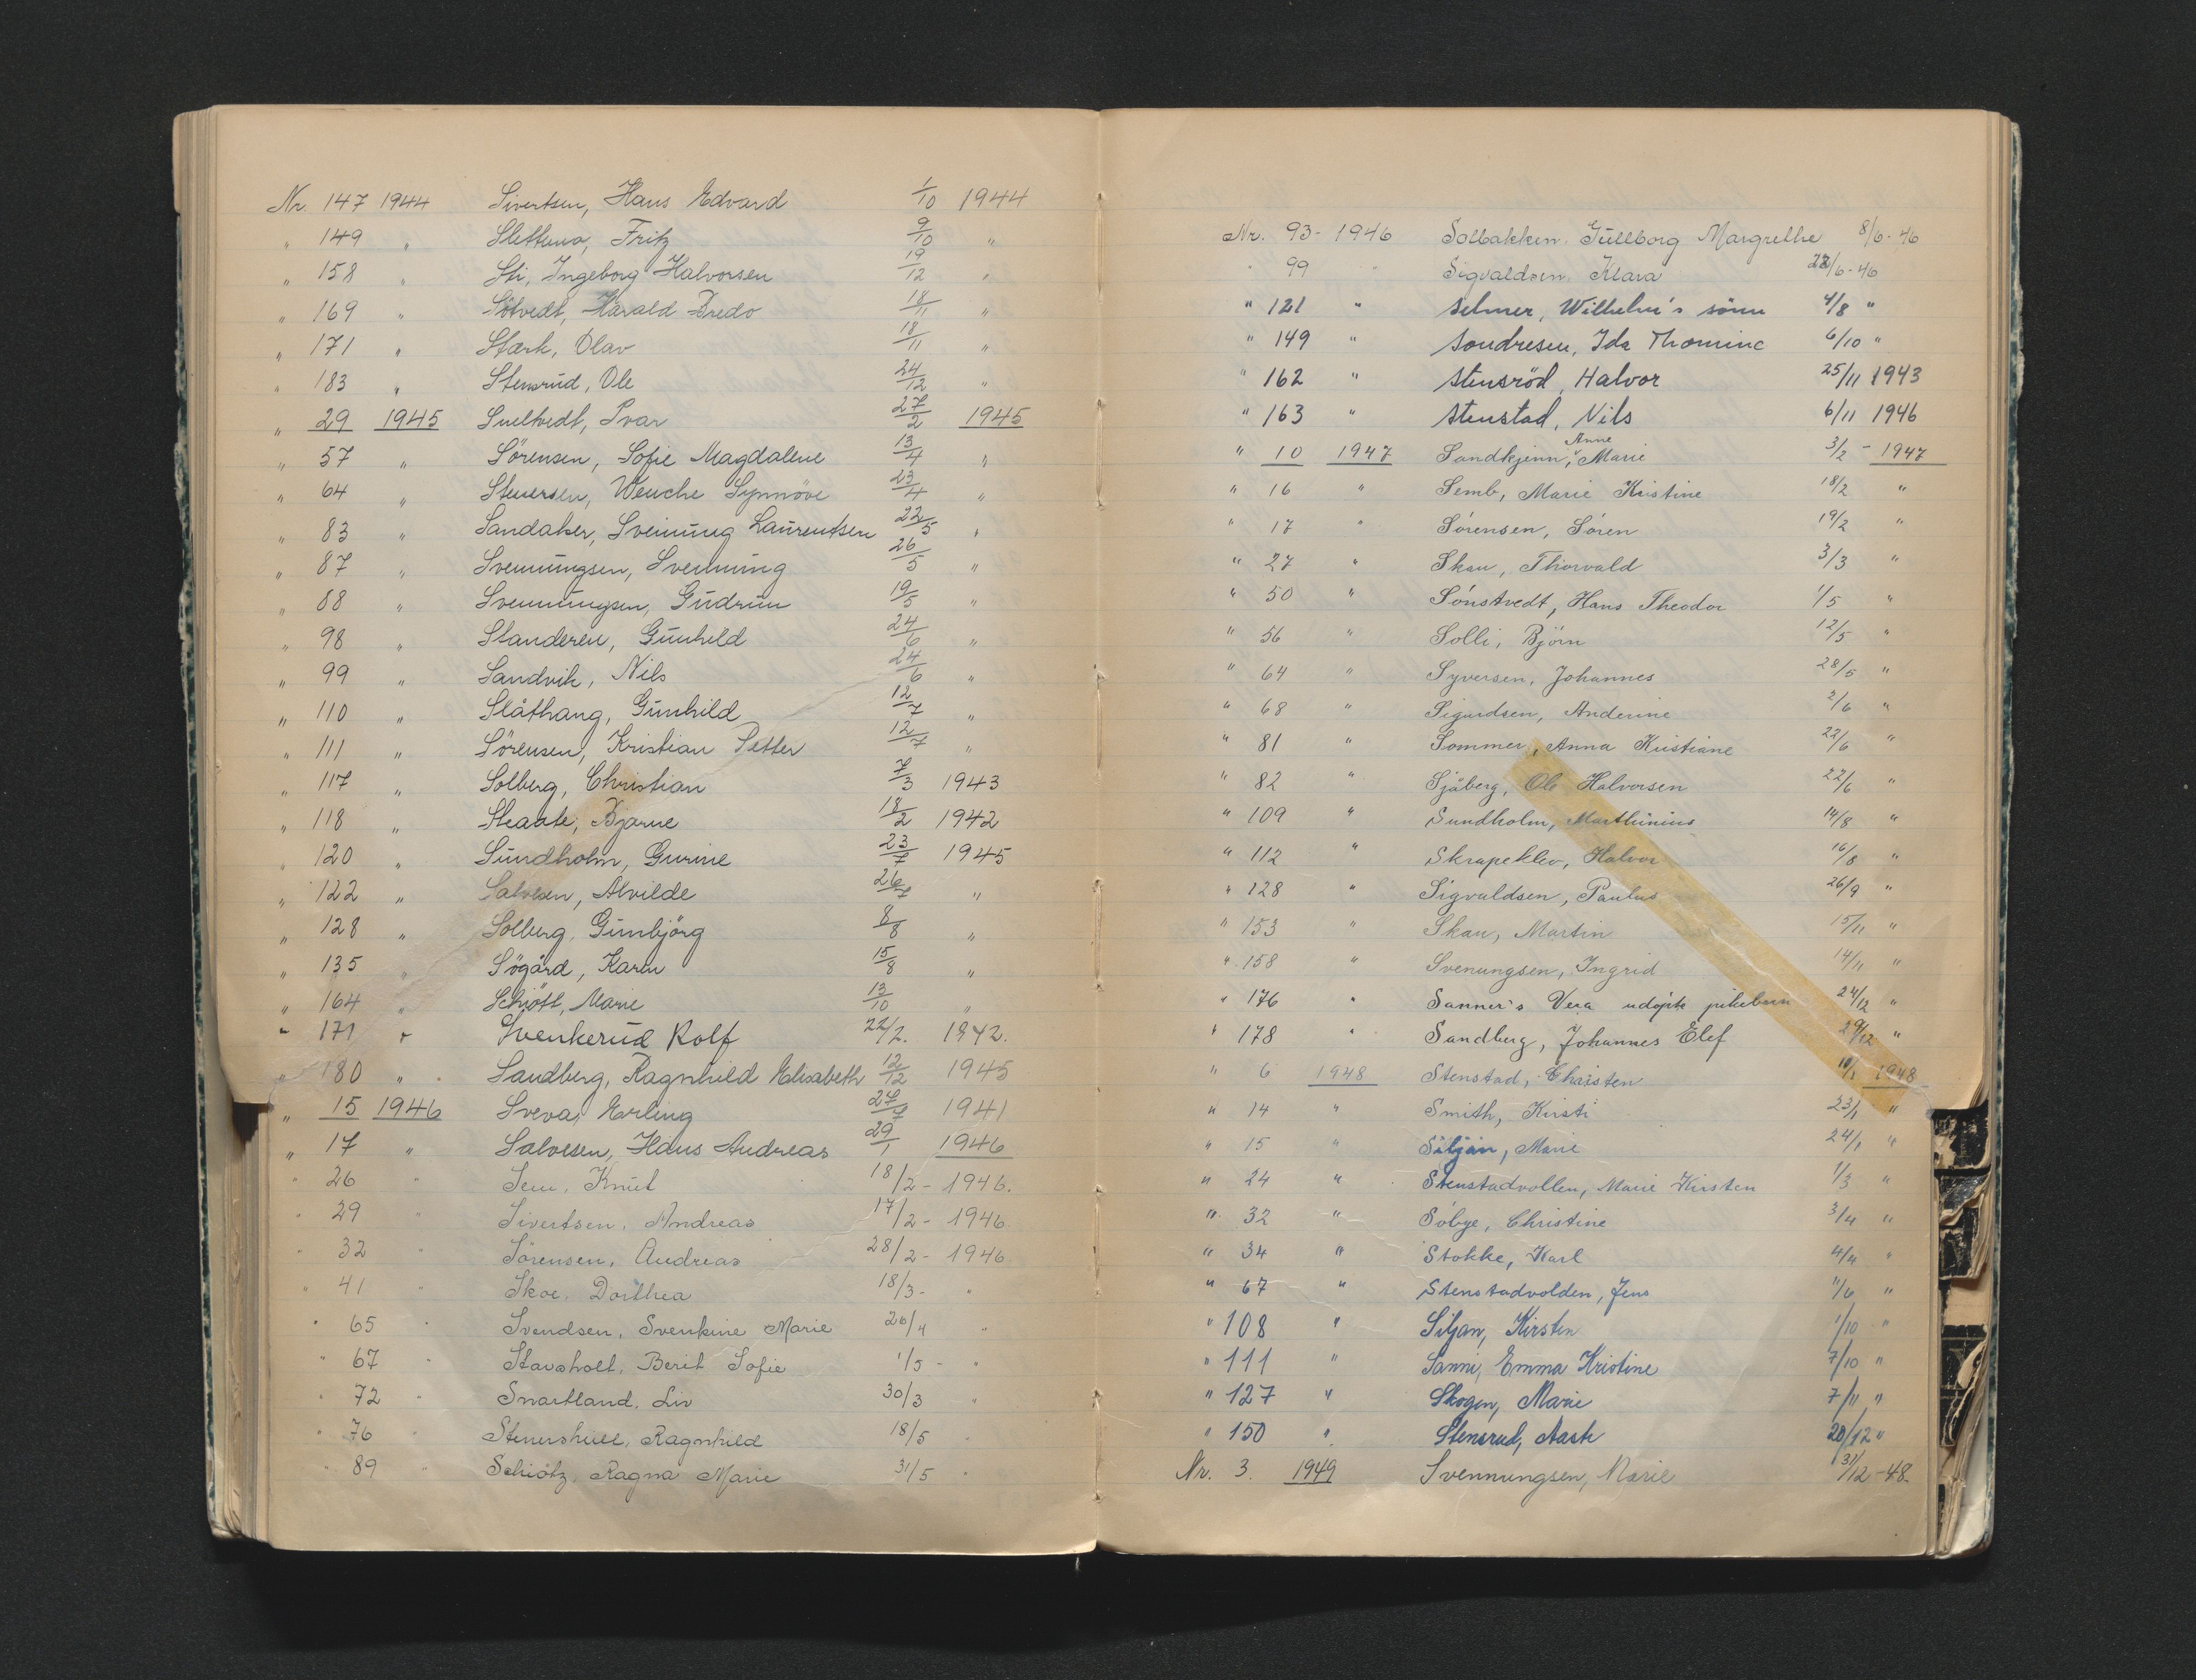 Nr. 147 1944 Sivertsen, Hans Edvard 1/10 1944
" 149 " Slettuno, Fritz 9/10 "
" 158 " Sti, Ingeborg Halvorsen 19/12 "
" 169 " Sötvedt, Harald Fredo 18/11 "
" 171 " Stærk, Olav 18/11 "
" 183 " Stensrud, Ole 24/12 "
" 29 1945 Sneltvedt, Ivar 27/2 1945
" 57 " Sörensen, Sofie Magdalene 13/4 "
" 64 " Stenersen, Wenche Synnöve 23/4 "
" 83 " Sandaker, Sveinung Laurentsen 22/5 "
" 87 " Svennungsen, Svenning 26/5 "
" 88 " Svennungsen, Gudrun 19/5 "
" 98 " Standeren, Gunhild 24/6 "
" 99 " Sandvik, Nils 24/6 "
" 110 " Slåthaug, Gunhild 12/7 "
" 111 " Sörensen, Kristian Petter 12/7 "
" 117 " Solberg, Christian 7/3 1943
" 118 " Skaate, Bjarne 18/2 1942
" 120 " Sundholm, Gurine 23/7 1945
" 122 " Salvesen, Alvilde 26/7 "
" 128 " Solberg, Gunbjörg 8/8 "
" 135 " Sögård, Karen 15/8 "
" 164 " Schjött, Marie 13/10 "
" 171 " Svenkerud Rolf 22/2. 1942.
" 180 " Sandberg, Ragnhild Elisabeth 12/12 1945
" 15 1946 Sveva, Erling 27/7 1941
" 17 " Salvesen, Hans Andreas 29/1 1946
" 26 " Sem, Knut 18/2 - 1946.
" 29 " Sivertsen, Andreas 17/2 - 1946.
" 32 " Sörensen, Andreas 28/2 - 1946.
" 41 " Skoe, Dorthea 18/3 - "
" 65 " Svendsen, Svenkine Marie 26/4 "
" 67 " Stavsholt, Berit Sofie 1/5 - "
" 72 " Snartland, Liv 30/3 "
" 76 " Stenershull, Ragnhild 18/5 "
" 89 " Schiötz, Ragna Marie 31/5 "
Nr. 93 - 1946 Solbakken, Gullborg Margrethe 8/6 - 46
" 99 " Sigvaldsen, Klara 22/6 - 46
" 121 " Selmer, Wilhelm's sönn 4/8 "
" 149 " Sondresen, Ida Thomine 6/10 "
" 162 " Stensröd, Halvor 25/11 1943
" 163 " Stenstad, Nils 6/11 1946
" 10 1947 Sandkjenn, Anne Marie 3/2 - 1947
" 16 " Semb, Marie Kristine 18/2 "
" 17 " Sörensen, Sören 19/2 "
" 27 " Skau, Thorvald 3/3 "
" 50 " Sönstvedt, Hans Theodor 1/5 "
" 56 " Solli, Björn 12/5 "
" 64 " Syversen, Johannes 28/5 "
" 68 " Sigurdsen, Anderine 2/6 "
" 81 " Sommer, Anna Kristiane 22/6 "
" 82 " Sjåberg, Ole Halvorsen 22/6 "
" 109 " Sundholm, Marthinius 14/8 "
" 112 " Skrapeklev, Halvor 16/8 "
" 128 " Sigvaldsen, Paulus 26/9 "
" 153 " Skau, Martin 15/11 "
" 158 " Svenungsen, Ingrid 14/11 "
" 176 " Sanner's Vera udöpte pikebarn 24/12 "
" 178 " Sandberg, Johannes Elef 29/12 "
" 6 1948 Stenstad, Christen 10/1 1948
" 14 " Smith, Kirsti 23/1 "
" 15 " Siljan, Marie 24/1 "
" 24 " Stenstadvollen, Marie Kirsten 1/3 "
" 32 " Söbye, Christine 3/4 "
" 34 " Stokke, Karl 4/4 "
" 67 " Stenstadvolden, Jens 11/6 "
" 108 " Siljan, Kirsten 1/10 "
" 111 " Sanni, Emma Kristine 7/10 "
" 127 " Skogen, Marie 7/11 "
" 150 " Stensrud, Aaste 20/12 "
Nr. 3. 1949 Svennungsen, Marie 31/12 - 48.